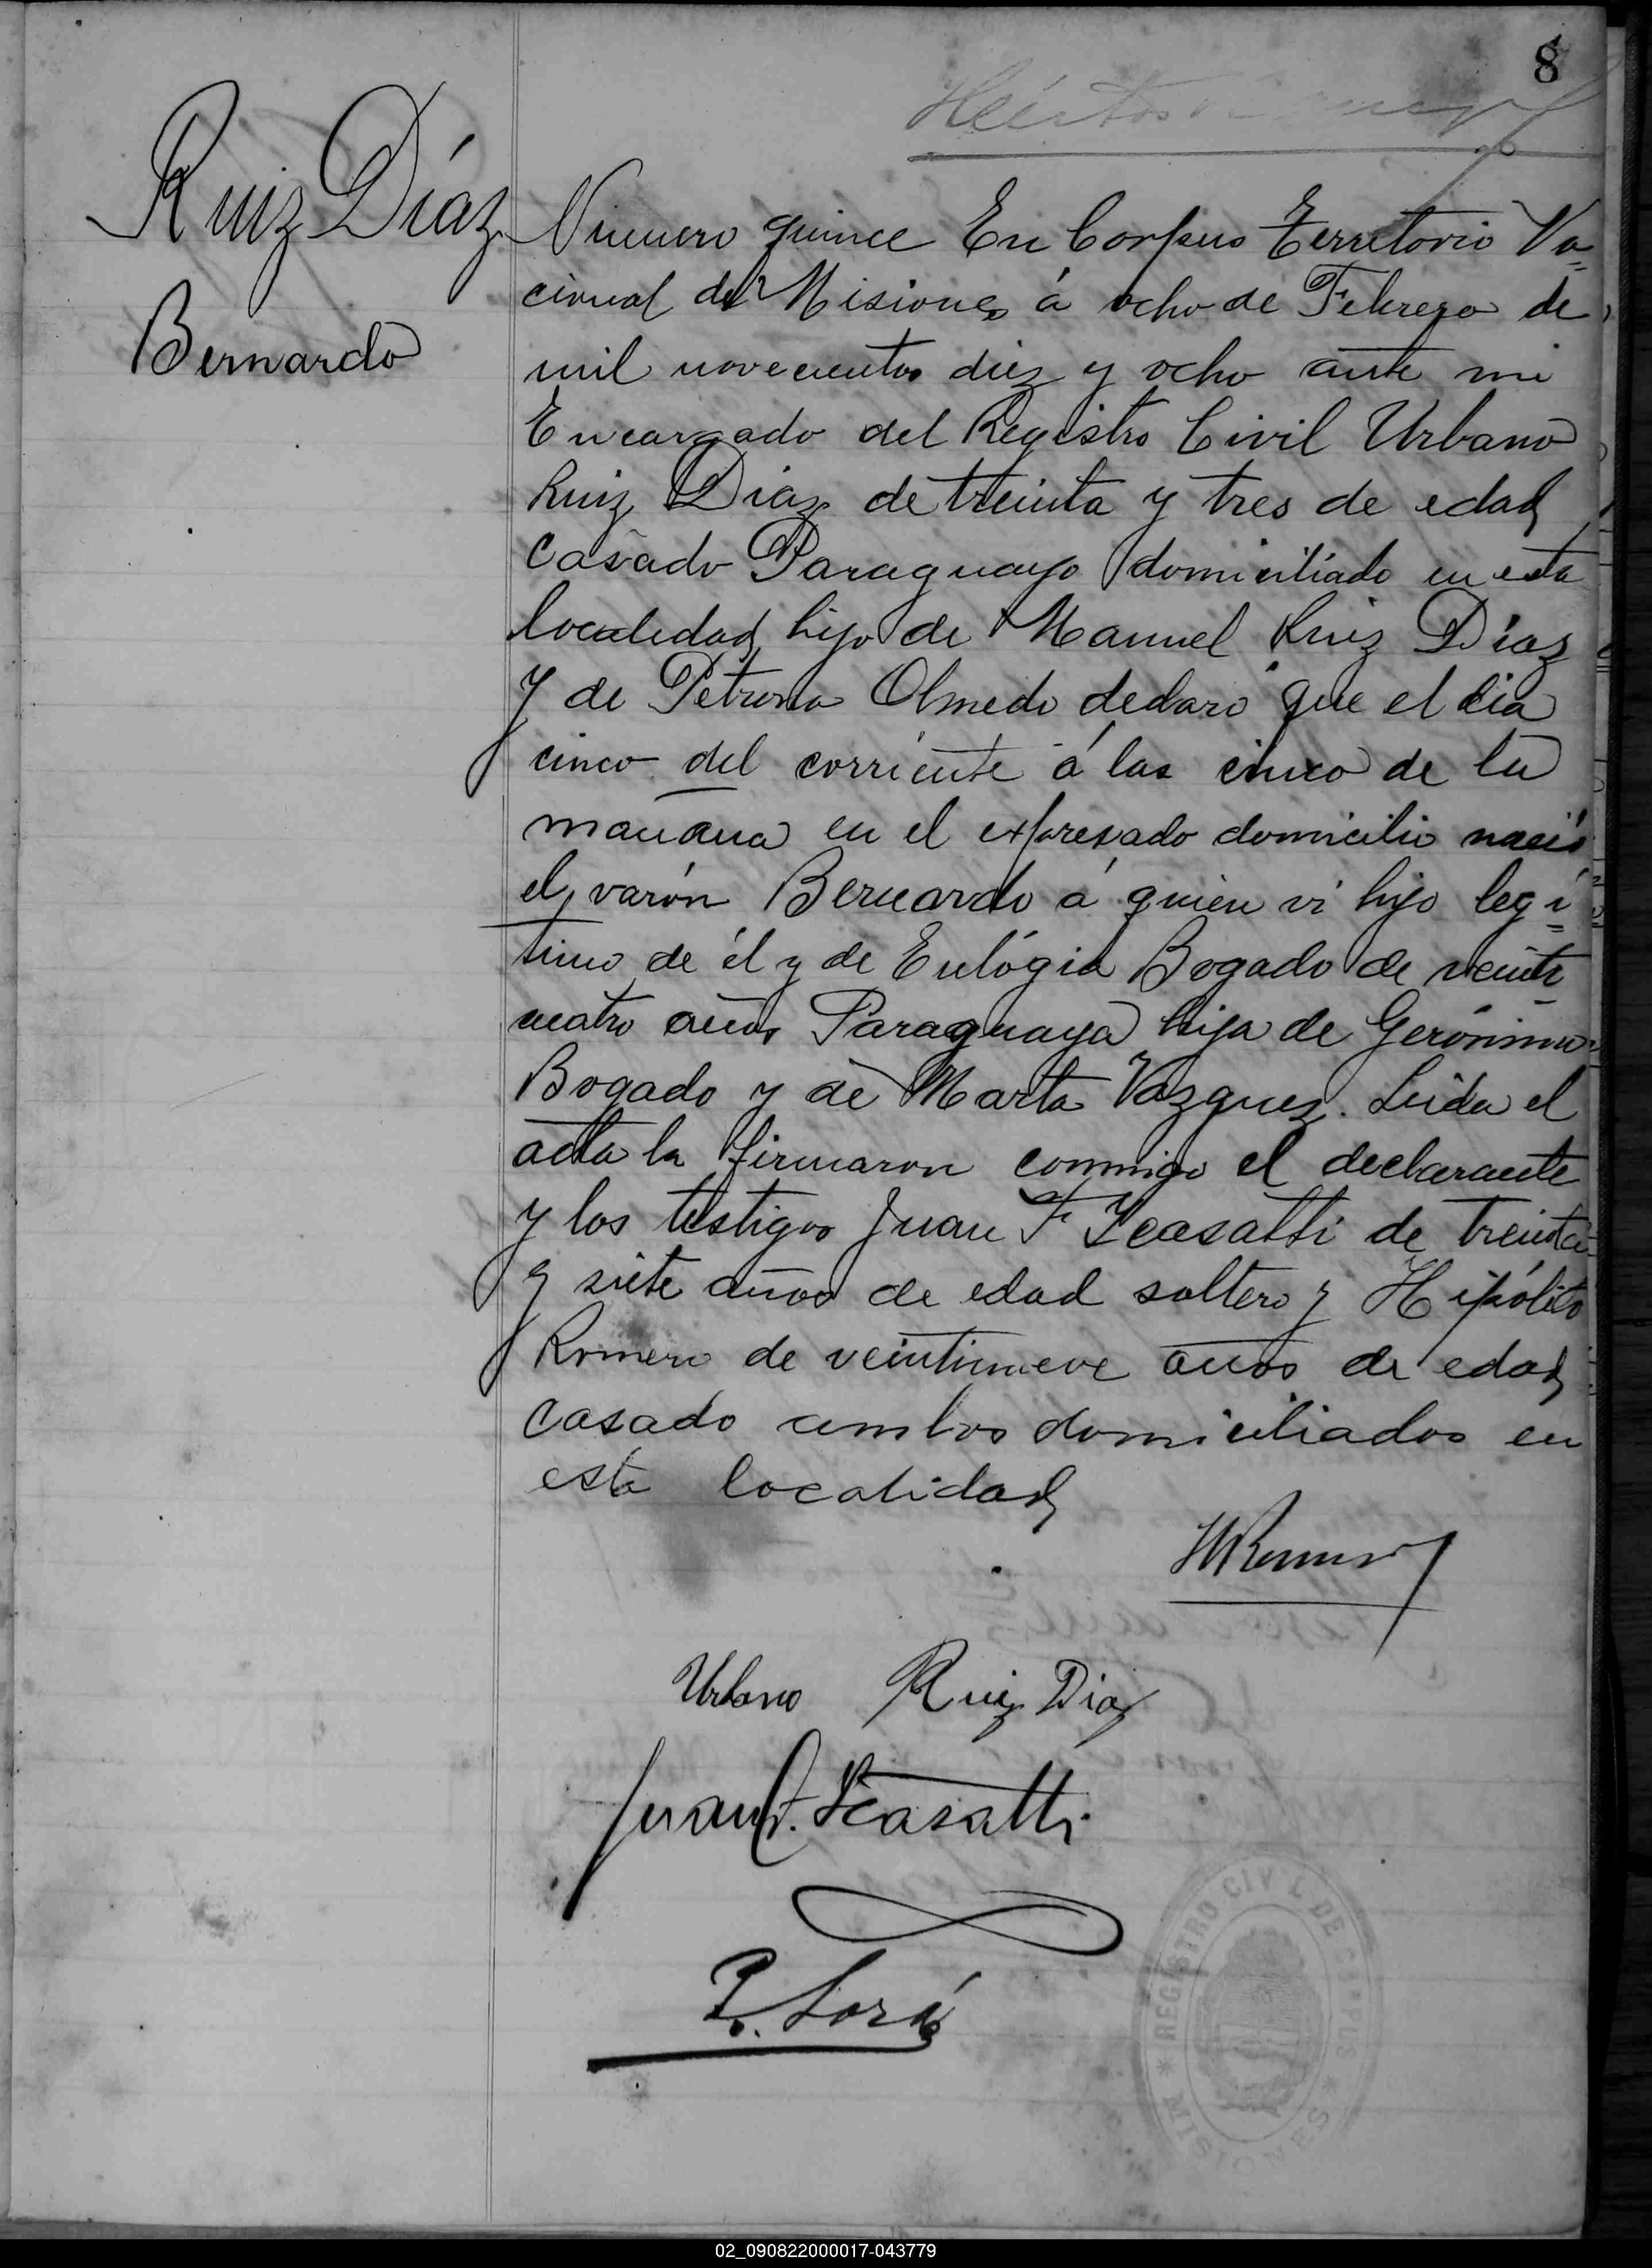 8
Ruiz Díaz
Bernardo
Numero quince En Corpus Territorio Na=
cional de Misiones á ocho de Febrero de
mil novecientos diez y ocho ante mi
Encargado del Registro Civil Urbano
Ruiz Diaz de treinta y tres de edad
casado Paraguayo domiciliado en esta
localidad hijo de Manuel Ruiz Díaz
y de Petrona Olmedo declaró que el dia
cinco del corriente á las cinco de la
mañana en el expresado domicilio nació
el varón Bernardo á quien vi hijo legí=
timo de él y de Eulógia Bogado de veinti
cuatro años Paraguaya hija de Gerónimo
Bogado y de Marta Vazquez. Leida el
acta la firmaron conmigo el declarante
y los testigos Juan F Scasatti de treinta
y siete años de edad soltero y Hipólito
Romero de veintinueve años de edad
casado ambos domiciliados en
esta localidad
HRomero
Urbano Ruiz Diaz
Juan F. Scasatti
REGISTRO CIVIL DE CORPUS
* MISIONES *
02_090822000017-043779